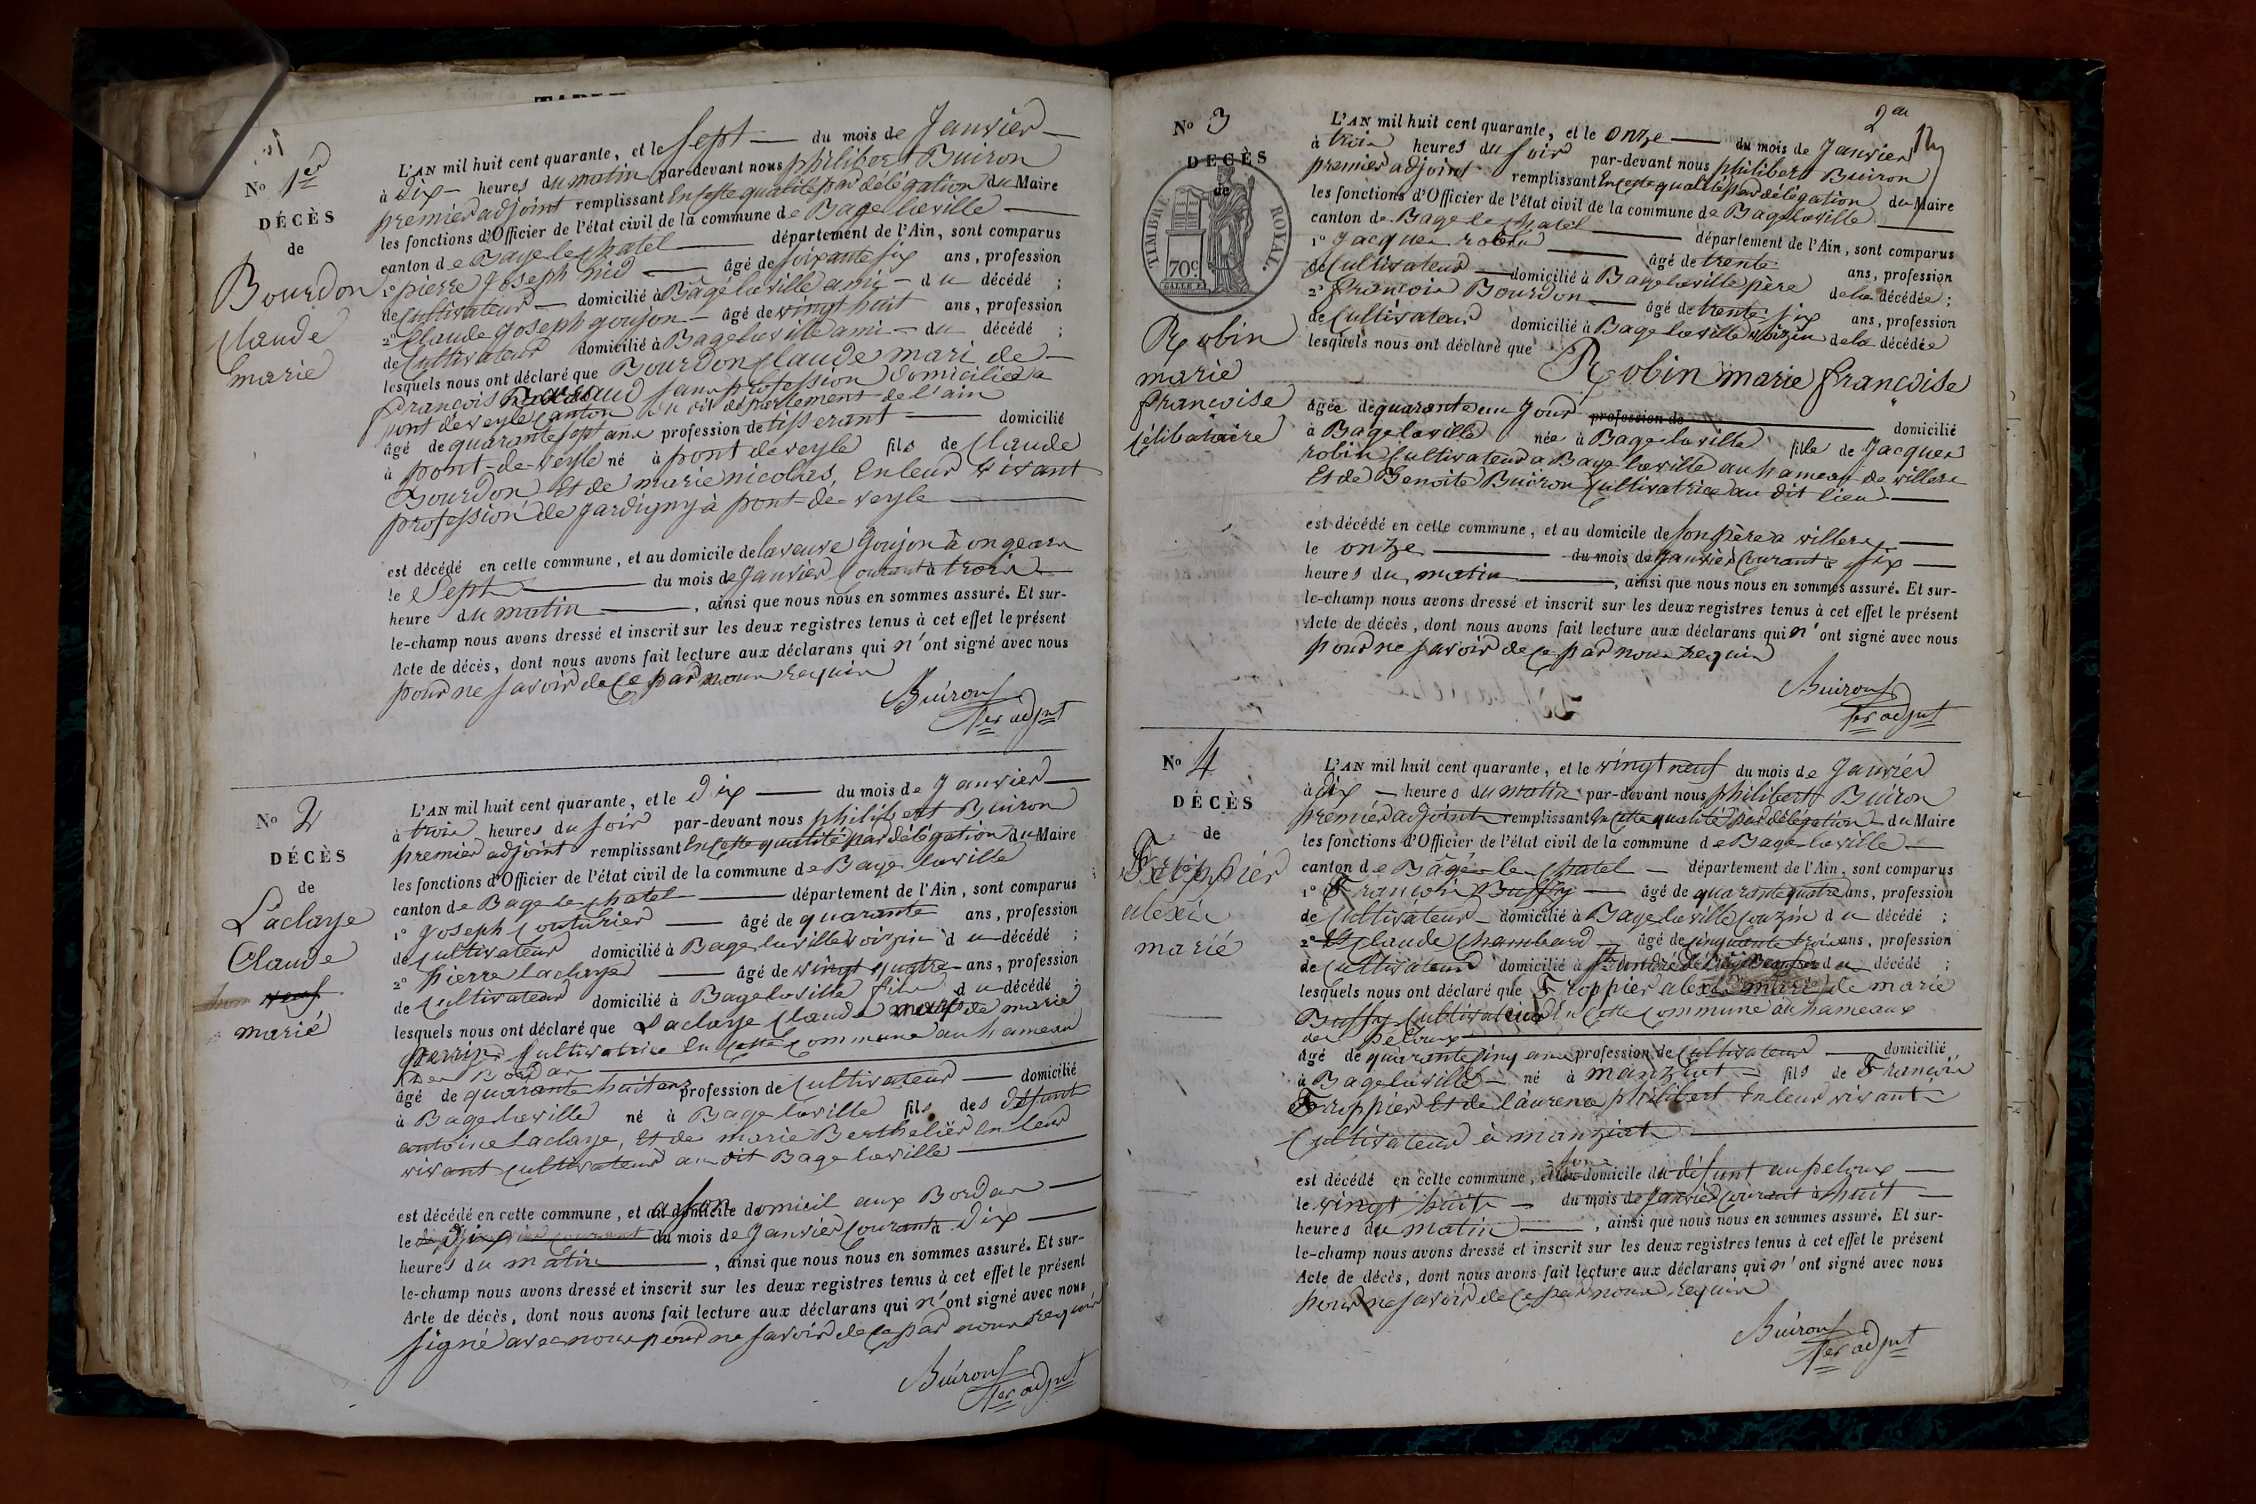 No 1er
DÉCÈS
de
Bourdon
Claude
marié
L'AN mil huit cent quarante, et le sept du mois de Janvier
à dix heures du matin par-devant nous philibert Buiron
premier adjoint remplissant en cette qualité par délégation du Maire
les fonctions d'Officier de l'état civil de la commune de Bage laville
canton de Bage le chatel département de l'Ain, sont comparus
1o pierre Joseph nid âgé de soixante six ans, profession
de Cultivateur domicilié à Bage laville ami du décédé ;
2o Claude Joseph goujon âgé de vingt huit ans, profession
de Cultivateur domicilié à Bage laville ami du décédé ;
lesquels nous ont déclaré que Bourdon Claude mari de
francois sans profession domiciliée a
pont de veyle canton du dit département de l'ain
âgé de quarante sept ans profession de tisserant domicilié
à pont-de-veyle né à pont de veyle fils de Claude
Bourdon Et de marie nicolas, En leur vivant
profession de à pont-de-veyle
est décédé en cette commune, et au domicile de la veuve Goujon à
le Sept du mois de Janvier Courant à trois
heure du matin, ainsi que nous nous en sommes assuré. Et sur-
le-champ nous avons dressé et inscrit sur les deux registres tenus à cet effet le présent
Acte de décès, dont nous avons fait lecture aux déclarans qui n'ont signé avec nous
pour ne savoir de ce par nous requis
Buiron
1er adjnt
No 2
DÉCÈS
de
Laclaye
Claude
marié
L'AN mil huit cent quarante, et le dix du mois de Janvier
à trois heures du soir par-devant nous philibert Buiron
premier adjoint remplissant En cette qualité par délégation du Maire
les fonctions d'Officier de l'état civil de la commune de Bage laville
canton de Bage le chatel département de l'Ain, sont comparus
1o Joseph Couturier âgé de quarante ans, profession
de cultivateur domicilié à Bage laville voizin du décédé ;
2o pierre laclaye âgé de vingt quatre ans, profession
de Cultivateur domicilié à Bage laville fils du décédé ;
lesquels nous ont déclaré que Laclaye Claude de marie
Cultivatrice En cette Commune au hameau
des Bordas
âgé de quarante huit ans profession de Cultivateur domicilié
à Bage laville né à Bage laville fils des défunt
antoine Laclaye, Et de marie Berthelier En leur
vivant Cultivateur au dit Bage laville
est décédé en cette commune, et a son domicil aux Bordas
le dix du mois de Janvier Courant à dix
heures du matin, ainsi que nous nous en sommes assuré. Et sur-
le-champ nous avons dressé et inscrit sur les deux registres tenus à cet effet le présent
Acte de décès, dont nous avons fait lecture aux déclarans qui n'ont signé avec nous
signé avec nous pour ne savoir de ce par nous requis
Buiron
1er adjnt
2eu
No 3
DÉCÈS
de
TIMBRE ROYAL.
70c
Robin
marie
françoise
célibataire
L'AN mil huit cent quarante, et le onze du mois de Janvier
à trois heures du soir par-devant nous philibert Buiron
premier adjoint remplissant En cette qualité par délégation du Maire
les fonctions d'Officier de l'état civil de la commune de Bage laville
canton de Bage le chatel département de l'Ain, sont comparus
1o Jacques robin âgé de trente ans, profession
de Cultivateur domicilié à Bage laville père de la décédée ;
2o françois Bourdon âgé de trente six ans, profession
de Cultivateur domicilié à Bage laville voizin de la décédée
lesquels nous ont déclaré que Robin marie françoise
âgée de quarante un Jour profession de domicilié
à Bage laville née à Bage laville fille de Jacques
robin Cultivateur a Bage laville au hameau de villers
Et de Benoite Buiron Cultivatrice au dit lieu
est décédé en cette commune, et au domicile de son père a villers
le onze du mois de Janvier Courant à six
heures du matin, ainsi que nous nous en sommes assuré. Et sur-
le-champ nous avons dressé et inscrit sur les deux registres tenus à cet effet le présent
Acte de décès, dont nous avons fait lecture aux déclarans qui n'ont signé avec nous
pour ne savoir de ce par nous requis
Buiron
1er adjnt
No 4
DÉCÈS
de
Froppier
alexis
marié
L'AN mil huit cent quarante, et le vingt neuf du mois de Janvier
à dix heures du matin par-devant nous philibert Buiron
premier adjoint remplissant En cette qualité par délégation du Maire
les fonctions d'Officier de l'état civil de la commune de Bage laville
canton de Bâgé le chatel département de l'Ain, sont comparus
1o François Buffy âgé de quarante quatre ans, profession
de Cultivateur domicilié à Bage laville Couzin du décédé ;
2o Claude Chambard âgé de cinquante trois ans, profession
de Cultivateur domicilié à St andré de du décédé ;
lesquels nous ont déclaré que Froppier alexis mari de marie
Buffy Cultivateur En cette commune au hameaux
des peloux
âgé de quarante cinq ans profession de Cultivateur domicilié
à Bage laville né à manziat fils de François
Froppier Et de laurence philibert En leur vivant
Cultivateur à manziat
est décédé en cette commune, et son domicile du défunt au peloux
le vingt huit du mois de Janvier Courant à huit
heures du matin, ainsi que nous nous en sommes assuré. Et sur-
le-champ nous avons dressé et inscrit sur les deux registres tenus à cet effet le présent
Acte de décès, dont nous avons fait lecture aux déclarans qui n'ont signé avec nous
pour ne savoir de ce par nous requis
Buiron
1er adjnt